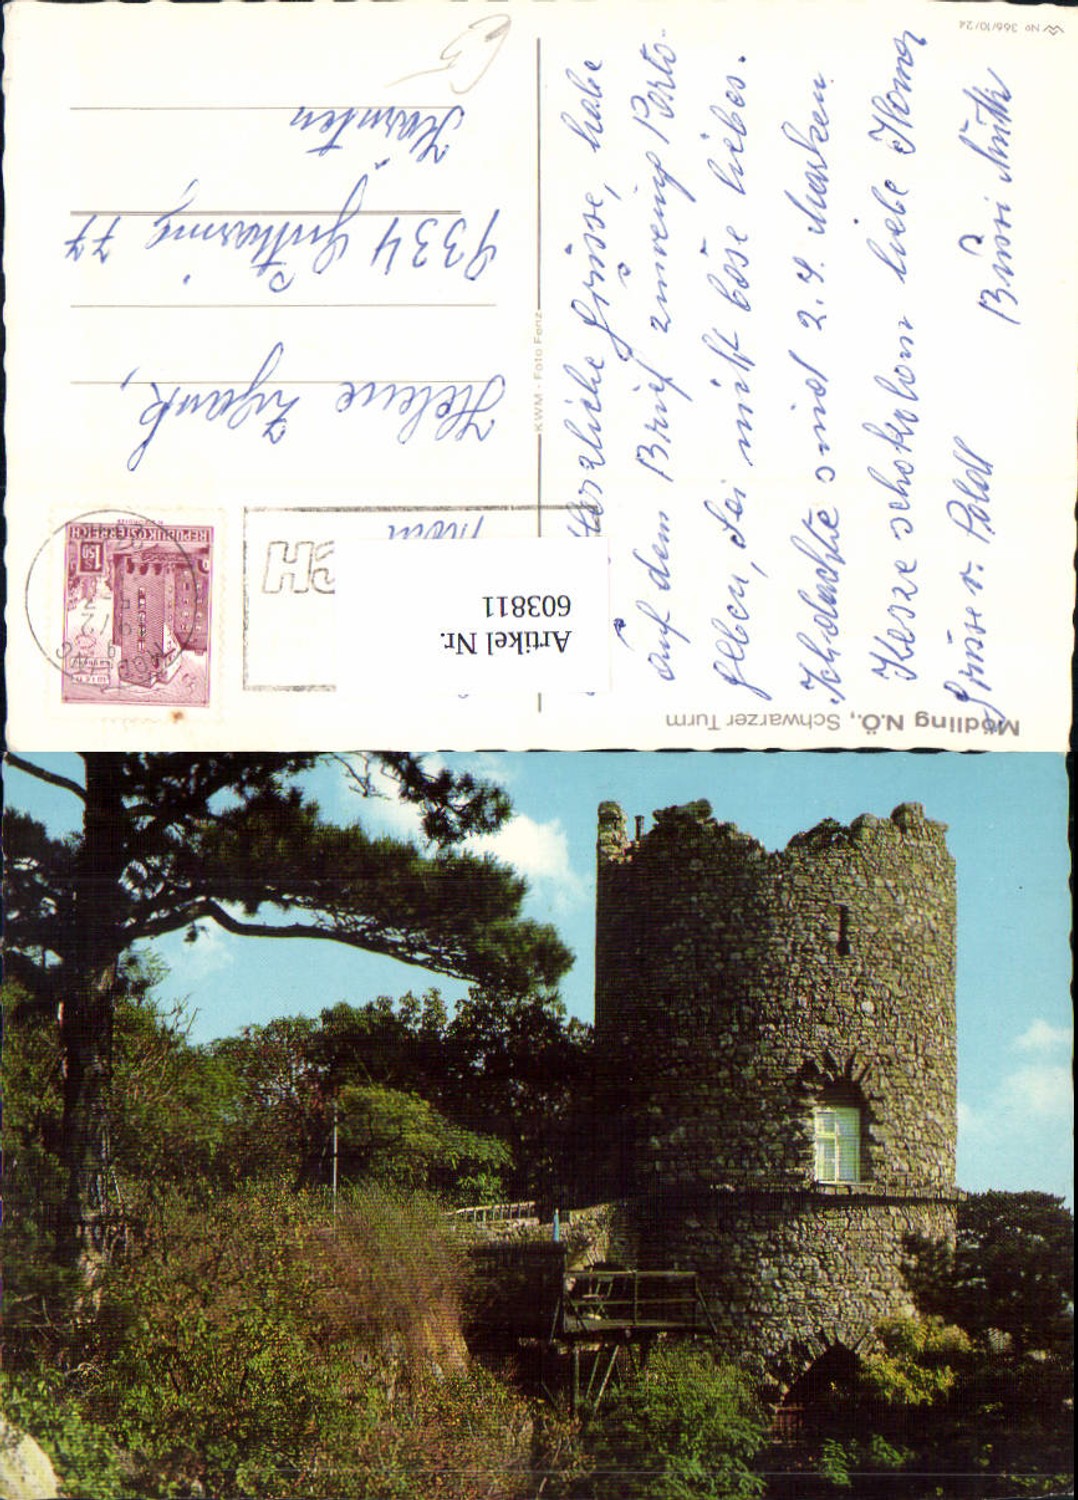 Mödling N.Ö., Schwarzer Turm
Herzliche Grüsse, habe
auf dem Brief zuwenig Porto-
geben, sei nicht böse liebes.
Ich dachte sind 2.4. Marken
Kerze schokolom liebe Homa
Grüsse v. Poldl
Bussi Mutti
KWM - Foto Fenz
Nº 366/10/24
REPUBLIK ÖSTERREICH
S 1.50
WIEN
Artikel Nr.
603811
Helene
9334 Guttaring 77
Kärnten